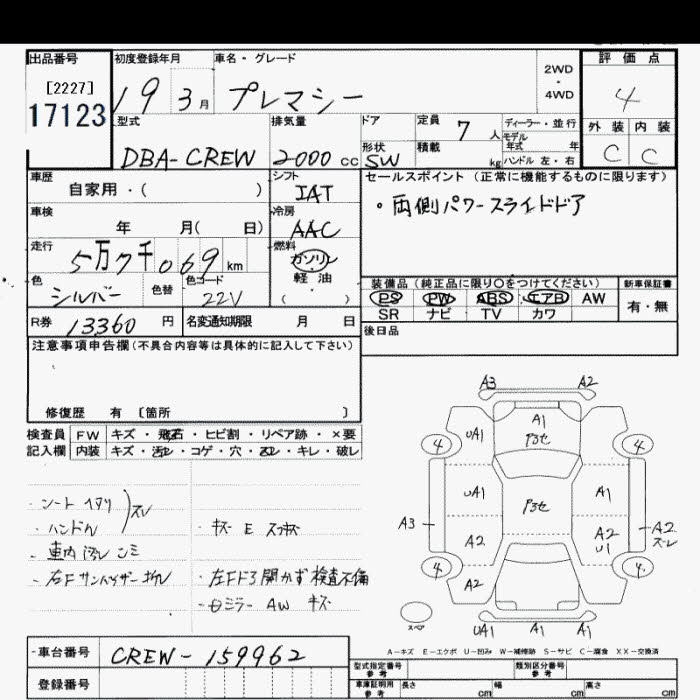 出品番号 初度登録年月 車名・グレード 2WD・4WD 評価点
[2227] 17123 19 3月 プレマシー 4
型式 排気量 ドア 定員 7人 ディーラー・並行 外装 内装
モデル年式 年
DBA-CREW 2000cc 形状 SW 積載 kg ハンドル 左・右 C C
車歴 シフト セールスポイント(正常に機能するものに限ります)
自家用・( ) IAT
車検 冷房 ・両側パワースライドドア
年 月( 日) AAC
走行 燃料
5万7千069km ガソリン
色 色替 色コード 軽油 装備品(純正品に限り○をつけてください) 新車保証書
シルバー 22V ( ) PS PW ABS エアB AW 有・無
R券 13360円 名変通知期限 月 日 SR ナビ TV カワ
注意事項申告欄(不具合内容等は具体的に記入して下さい) 後日品
修復歴 有 〔箇所 〕
検査員 FW キズ・飛石・ヒビ割・リペア跡・×要
記入欄 内装 キズ・汚レ・コゲ・穴・ヌレ・キレ・破レ
・シート ヘタリ スレ
・ハンドル ・キズ E スカキズ
・車内 汚レ シミ
・右F サンバイザー
・左F ドア 開かず 検査不備
・ミラー AW キズ
A3 A2
4 UA1 A1 P3セ 4
UA1 P3セ A1
A3 A2 A2 U1 A2 スレ
4 A2 4
スペア UA1 A1 A1
A-キズ E-エクボ U-凹み W-補修跡 S-サビ C-腐食 XX-交換済
車台番号 CREW-159962
登録番号
型式指定番号 参考 類別区分番号 参考
車庫証明用 参考 長さ cm 幅 cm 高さ cm